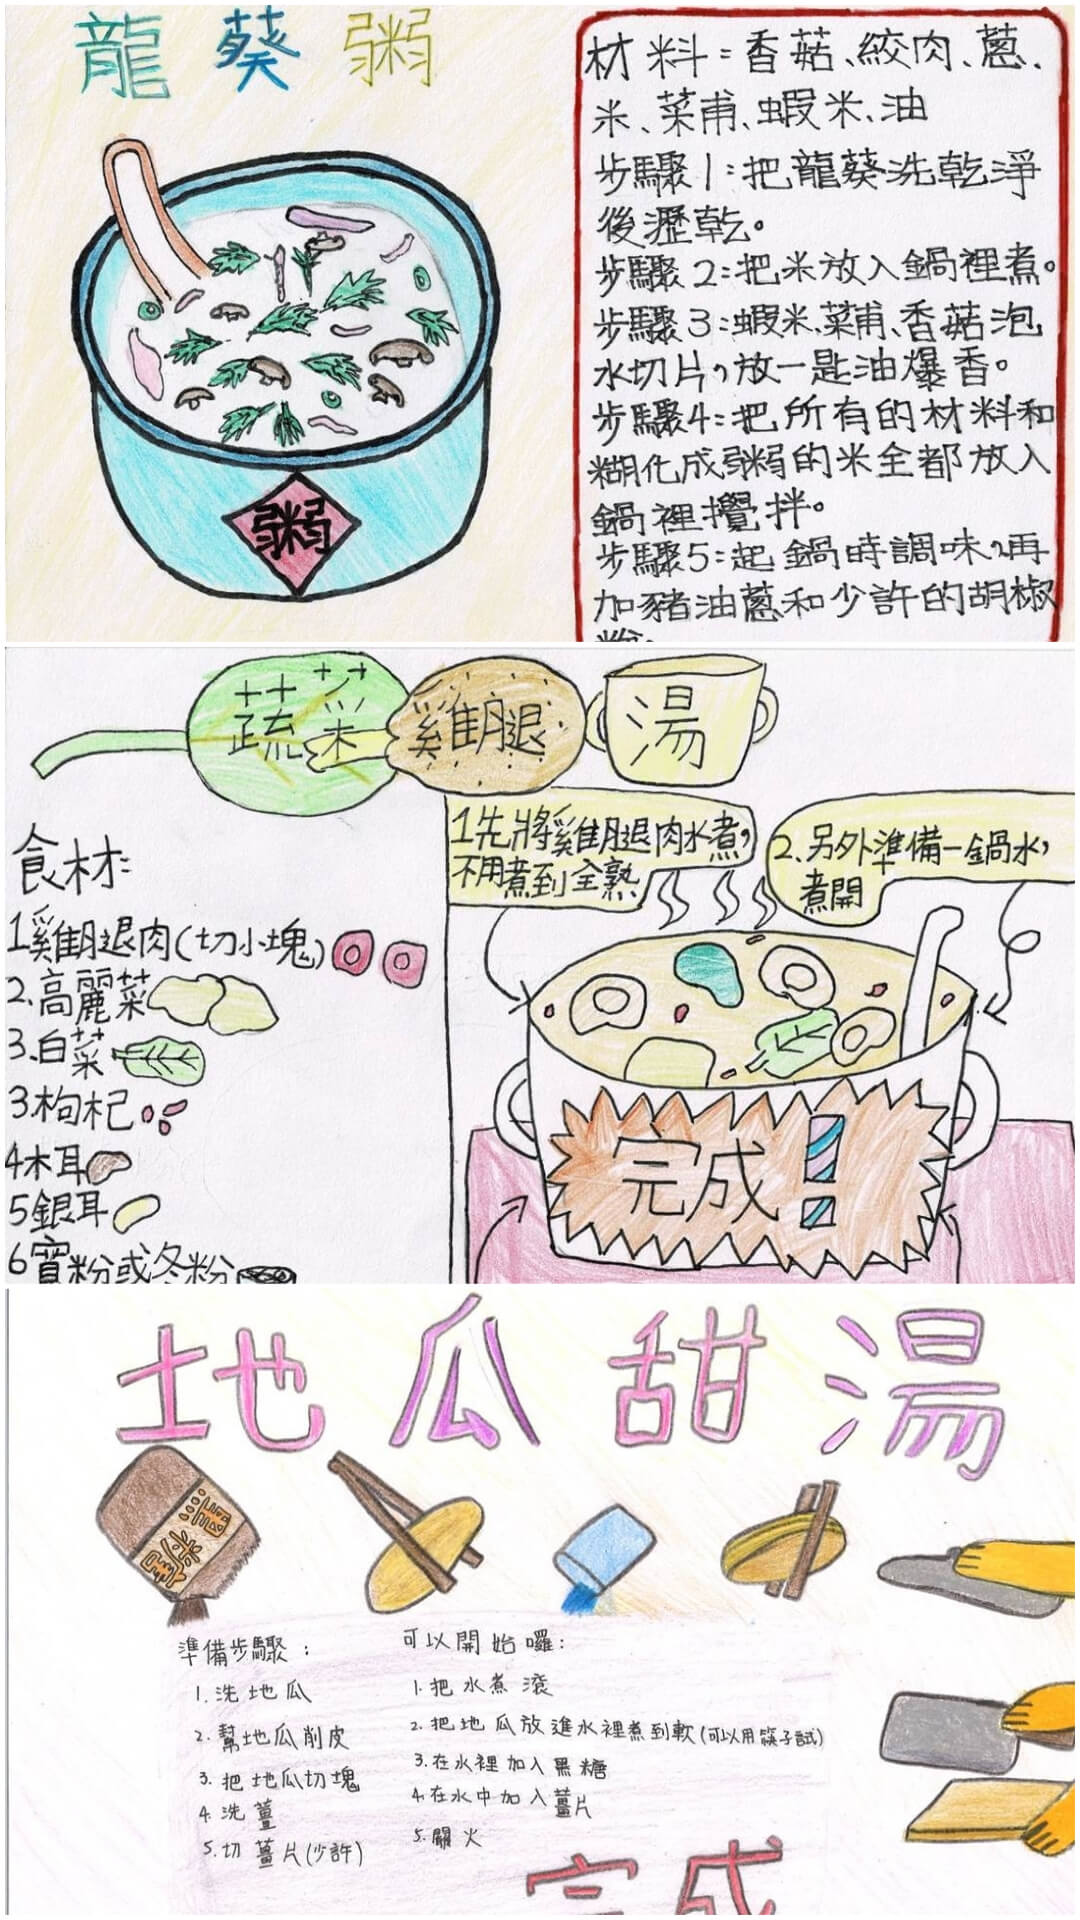 龍葵粥
材料：香菇、絞肉、蔥、
米、菜甫、蝦米、油
步驟1：把龍葵洗乾淨
後瀝乾。
步驟2：把米放入鍋裡煮。
步驟3：蝦米、菜甫、香菇泡
水切片，放一匙油爆香。
步驟4：把所有的材料和
糊化成粥的米全都放入
鍋裡攪拌。
步驟5：起鍋時調味，再
加豬油蔥和少許的胡椒
粉。
粥
蔬菜雞腿湯
食材：
1雞腿肉(切小塊)
2.高麗菜
3.白菜
3枸杞
4木耳
5銀耳
6寬粉或冬粉
1先將雞腿肉水煮，
不用煮到全熟
2.另外準備一鍋水，
煮開
完成！
地瓜甜湯
黑糖
準備步驟：
1.洗地瓜
2.幫地瓜削皮
3.把地瓜切塊
4.洗薑
5.切薑片(少許)
可以開始囉：
1.把水煮滾
2.把地瓜放進水裡煮到軟(可以用筷子試)
3.在水裡加入黑糖
4.在水中加入薑片
5.關火
完成